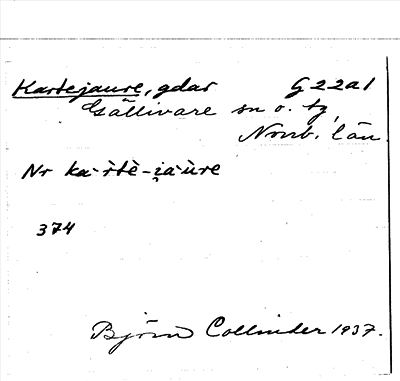 Kartejaure, gdar G22a1
Gällivare sn o. tg,
Norrb. län.
Nr ka·r̀tè-i̯a·ùre
374
Björn Collinder 1937.